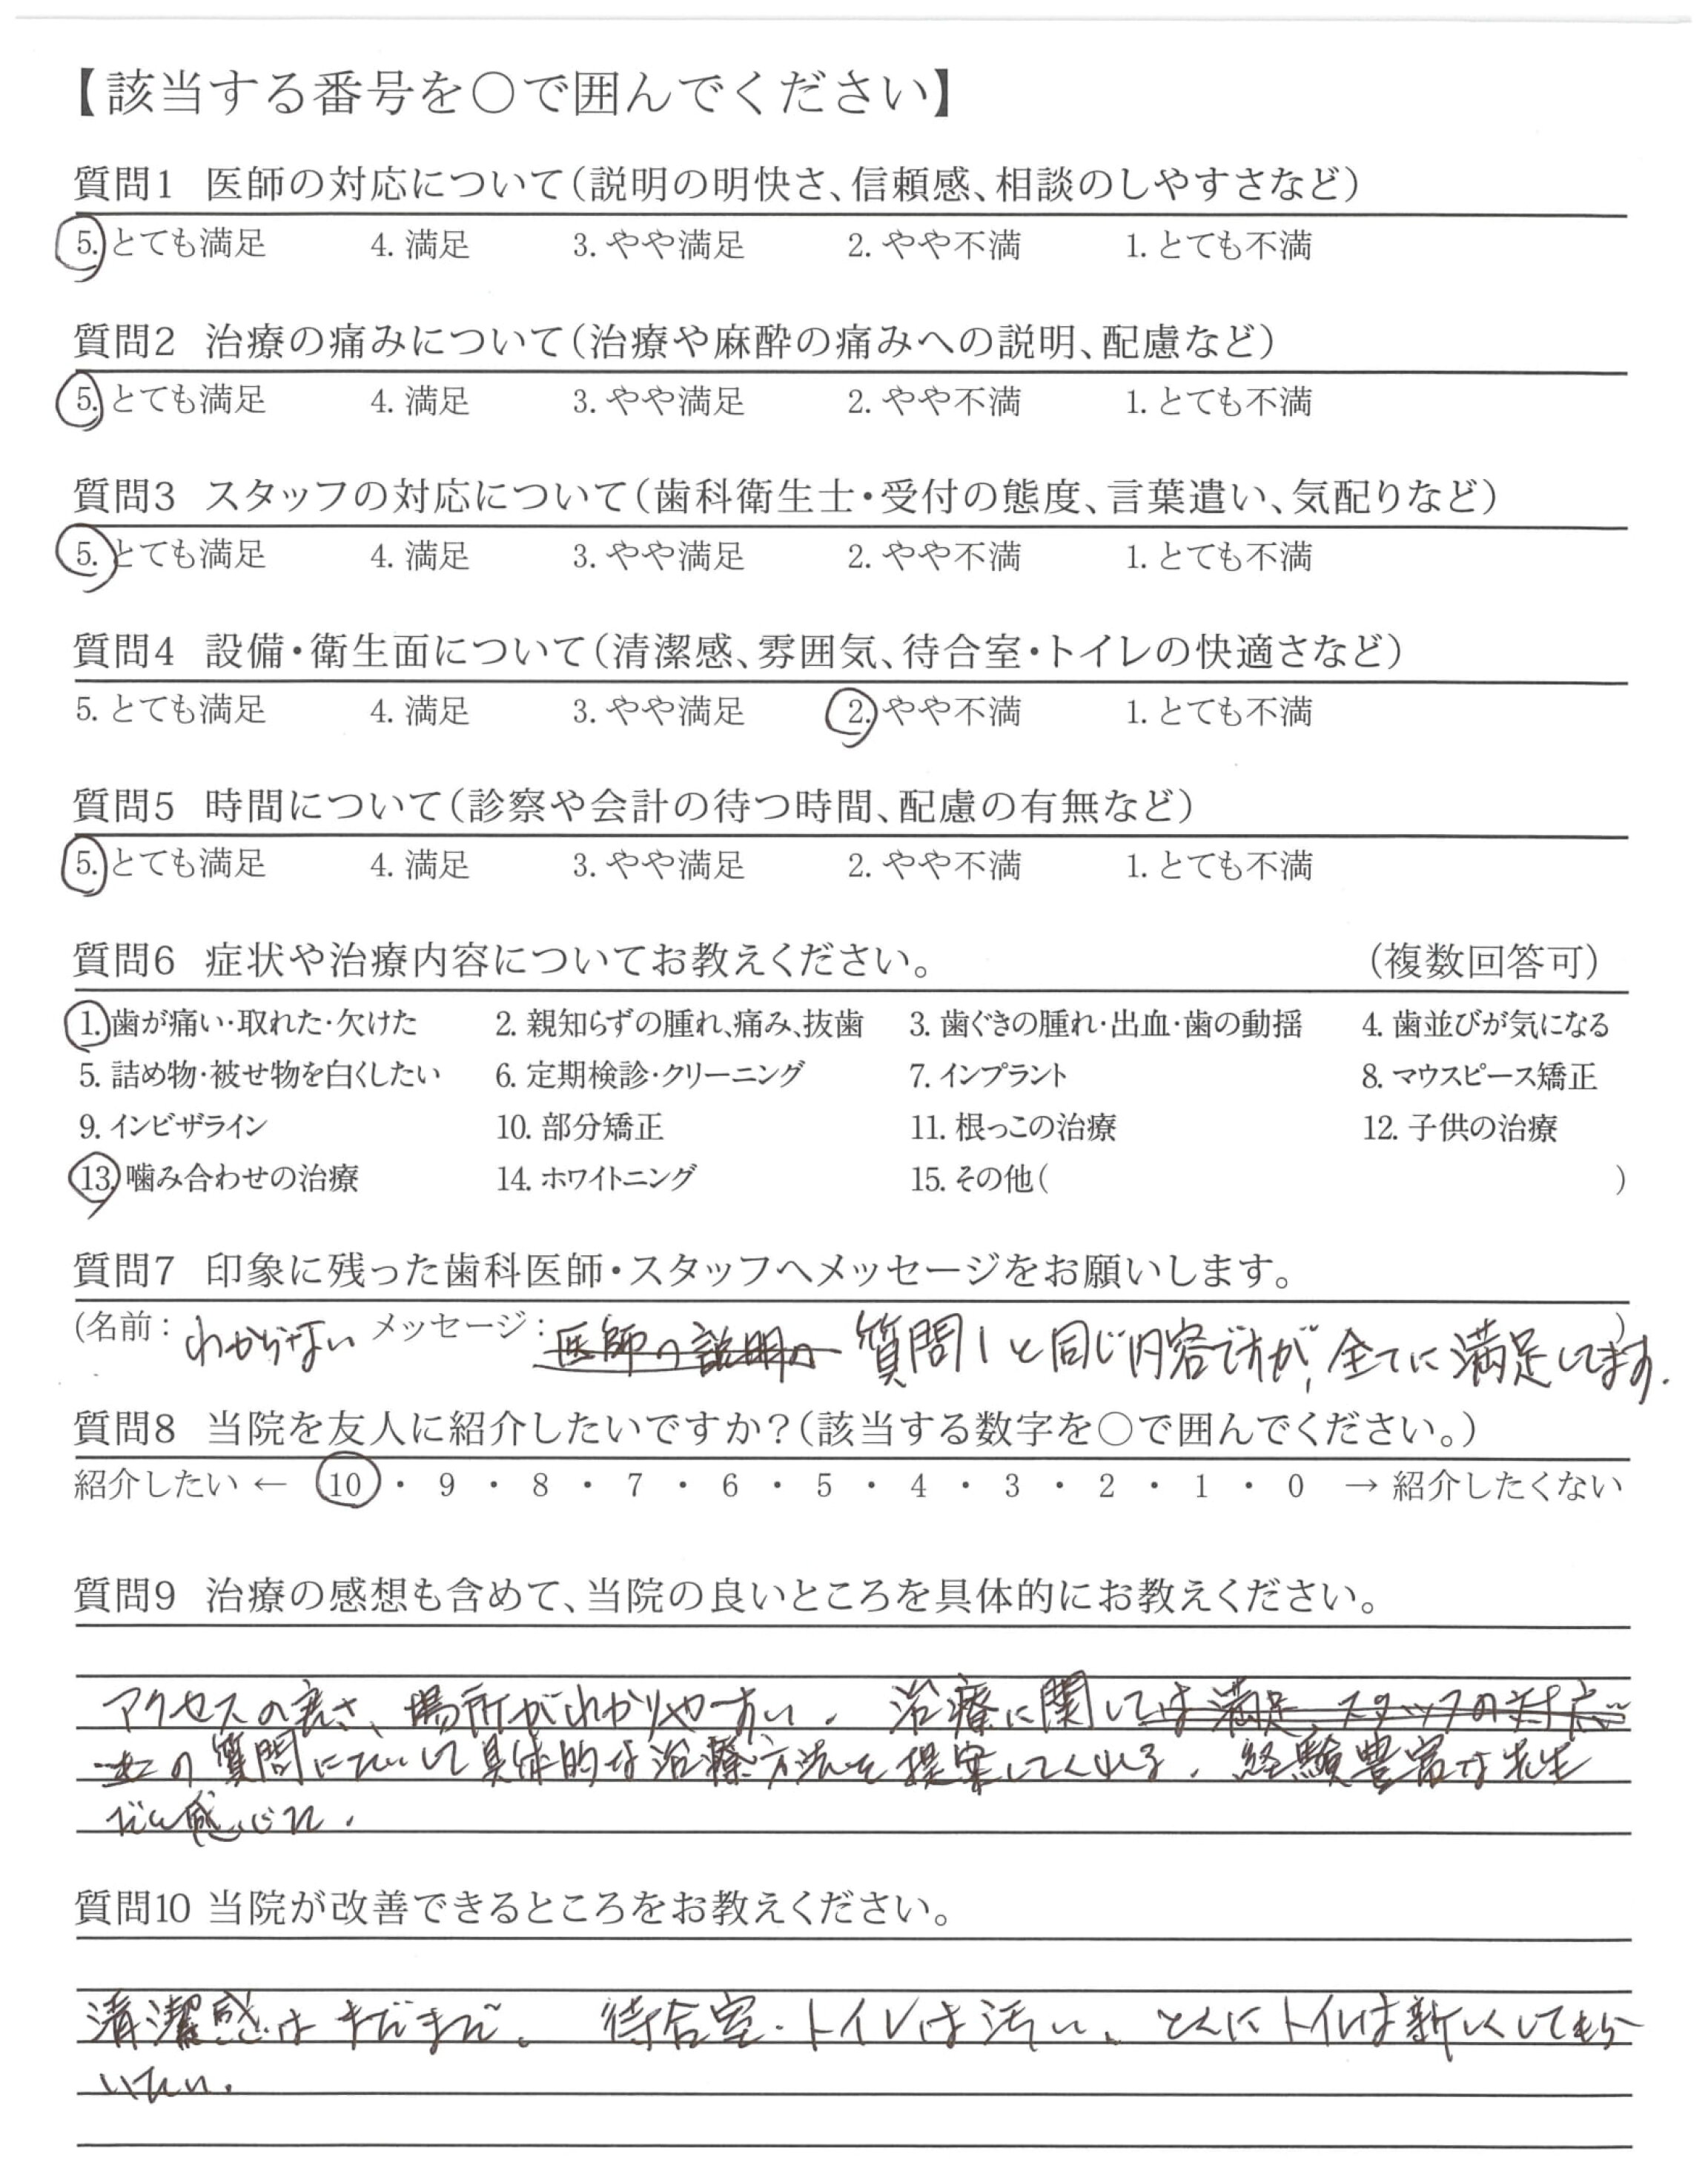 【該当する番号を○で囲んでください】
質問1 医師の対応について(説明の明快さ、信頼感、相談のしやすさなど)
5. とても満足 4. 満足 3. やや満足 2. やや不満 1. とても不満
質問2 治療の痛みについて(治療や麻酔の痛みへの説明、配慮など)
5. とても満足 4. 満足 3. やや満足 2. やや不満 1. とても不満
質問3 スタッフの対応について(歯科衛生士・受付の態度、言葉遣い、気配りなど)
5. とても満足 4. 満足 3. やや満足 2. やや不満 1. とても不満
質問4 設備・衛生面について(清潔感、雰囲気、待合室・トイレの快適さなど)
5. とても満足 4. 満足 3. やや満足 2. やや不満 1. とても不満
質問5 時間について(診察や会計の待つ時間、配慮の有無など)
5. とても満足 4. 満足 3. やや満足 2. やや不満 1. とても不満
質問6 症状や治療内容についてお教えください。 (複数回答可)
1. 歯が痛い・取れた・欠けた 2. 親知らずの腫れ、痛み、抜歯 3. 歯ぐきの腫れ・出血・歯の動揺 4. 歯並びが気になる
5. 詰め物・被せ物を白くしたい 6. 定期検診・クリーニング 7. インプラント 8. マウスピース矯正
9. インビザライン 10. 部分矯正 11. 根っこの治療 12. 子供の治療
13. 噛み合わせの治療 14. ホワイトニング 15. その他( )
質問7 印象に残った歯科医師・スタッフへメッセージをお願いします。
(名前: わからない メッセージ: 医師の説明の 質問1と同じ内容ですが、全てに満足してます. )
質問8 当院を友人に紹介したいですか?(該当する数字を○で囲んでください。)
紹介したい ← 10 ・ 9 ・ 8 ・ 7 ・ 6 ・ 5 ・ 4 ・ 3 ・ 2 ・ 1 ・ 0 → 紹介したくない
質問9 治療の感想も含めて、当院の良いところを具体的にお教えください。
アクセスの良さ、場所がわかりやすい. 治療に関しては満足、スタッフの対応
の質問にたいして具体的な治療方法を提案してくれる. 経験豊富な先生
だと感じた.
質問10 当院が改善できるところをお教えください。
清潔感はまだまだ。 待合室・トイレは汚い、 とくにトイレは新しくしてもら
いたい.